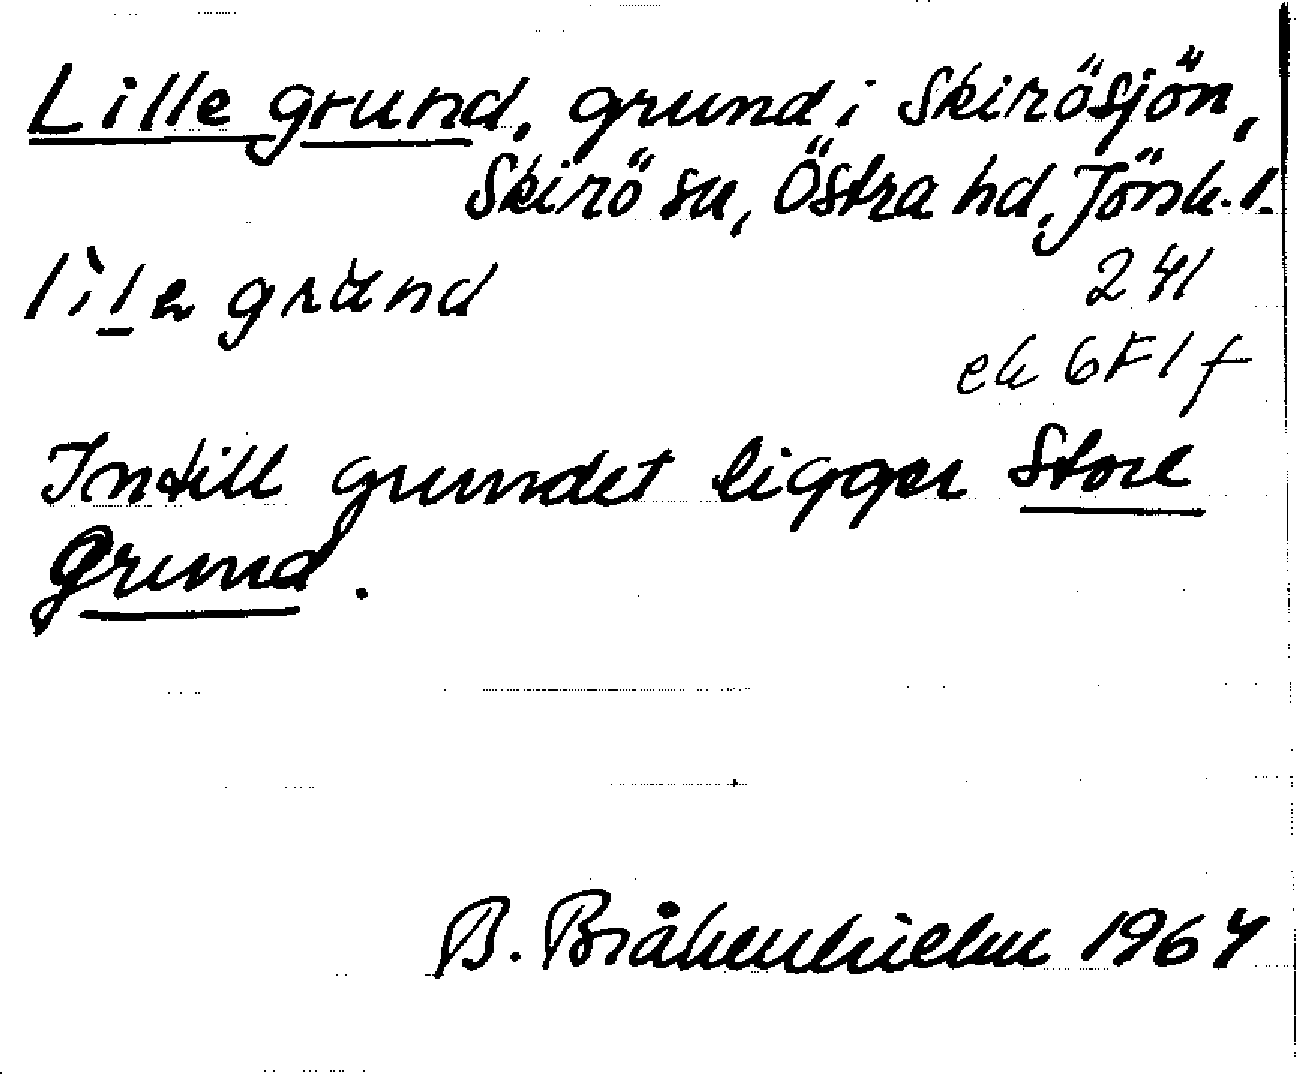 Lille grund, grund i Skirösjön,
Skirö sn, Östra hd, Jönk. l.
lìle grùnd
241
ek 6F1f
Intill grundet ligger Store
Grund.
B. Bråkenhielm 1964